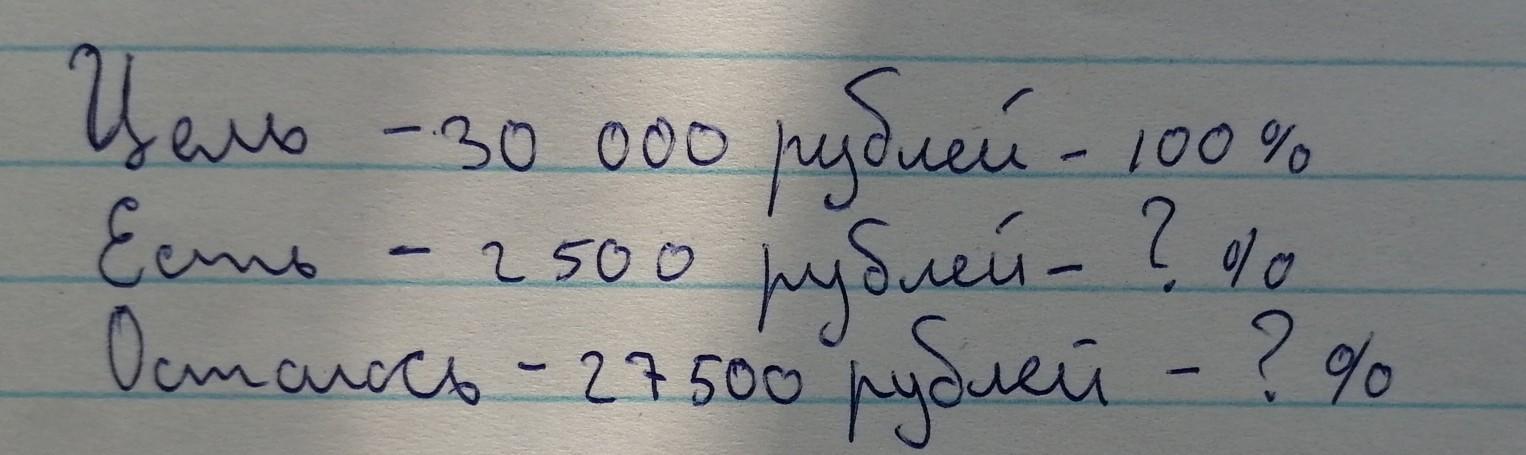 Цель - 30 000 рублей - 100%
Есть - 2500 рублей - ? %
Осталось - 27500 рублей - ? %